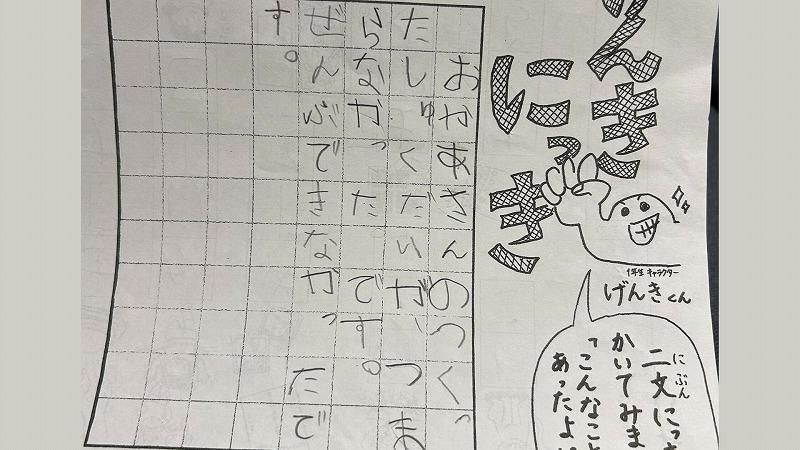 んき
にっき
1年生 キャラクター
げんきくん
にぶん
二文にっ
かいてみま
「こんなこと
あったよ
おかあさんのつくっ
たしゅくだいが、つま
らなかったです。
ぜんぶできなかったで
す。